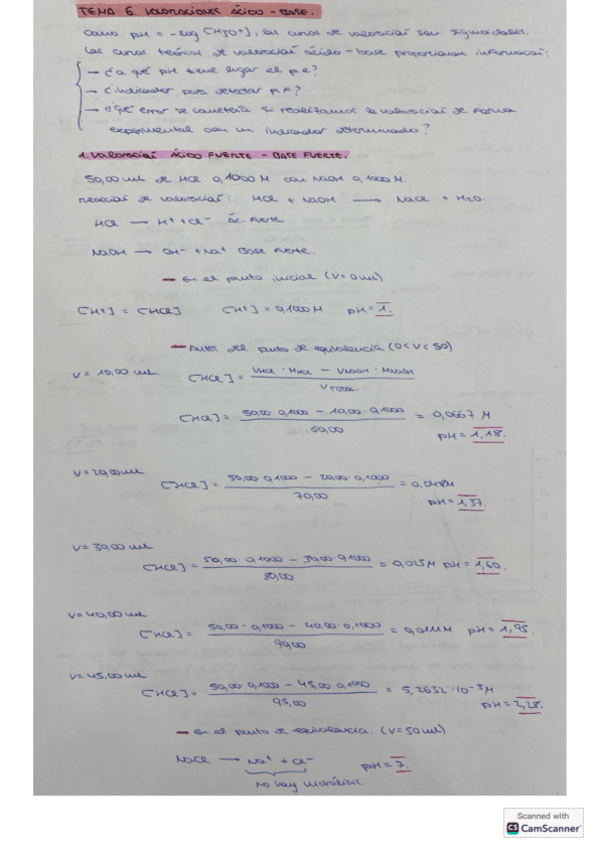 TEMA 6. VALORACIONES ÁCIDO - BASE.
Como pH = -log [H3O+], las curvas de valoración son sigmoidales.
Las curvas teóricas de valoración ácido-base proporcionan información:
→ ¿a qué pH tiene lugar el p.e?
→ ¿indicador para detectar p.F?
→ ¿qué error se cometerá si realizamos la valoración de forma
experimental con un indicador determinado?
1. VALORACIÓN ÁCIDO FUERTE - BASE FUERTE.
50,00 ml de HCl 0,1000 M con NaOH 0,1000 M.
Reacción de valoración: HCl + NaOH → NaCl + H2O.
HCl → H+ + Cl- Ác. Fuerte
NaOH → OH- + Na+ Base Fuerte.
- En el punto inicial (V=0ml)
[H+] = [HCl] [H+] = 0,1000 M pH = 1.
- Antes del punto de equivalencia (0<V<50)
V = 10,00 ml [HCl] = VHCl · MHCl - VNaOH · MNaOH / VTOTAL
[HCl] = 50,00 · 0,1000 - 10,00 · 0,1000 / 60,00 = 0,0667 M
pH = 1,18.
V = 20,00 ml [HCl] = 50,00 · 0,1000 - 20,00 · 0,1000 / 70,00 = 0,0428M
pH = 1,37.
V = 30,00 ml [HCl] = 50,00 · 0,1000 - 30,00 · 0,1000 / 80,00 = 0,025M pH = 1,60.
V = 40,00 ml [HCl] = 50,00 · 0,1000 - 40,00 · 0,1000 / 90,00 = 0,0111M pH = 1,95.
V = 45,00 ml [HCl] = 50,00 · 0,1000 - 45,00 · 0,1000 / 95,00 = 5,2632 · 10-3 M
pH = 2,28.
- En el punto de equivalencia. (V=50ml)
NaCl → Na+ + Cl- pH = 7.
No hay hidrólisis.
Scanned with
CS CamScanner